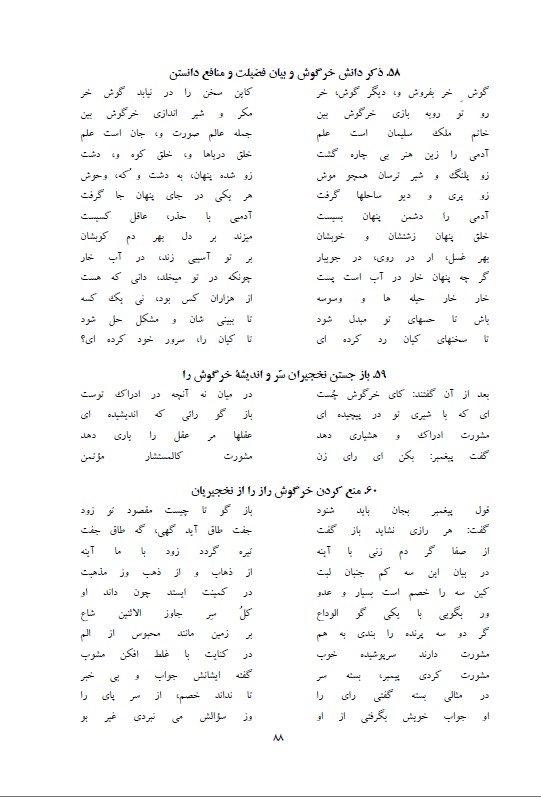 ۵۸. ذکر دانش خرگوش و بیان فضیلت و منافع دانستن
گوش ِ خر بفروش و، دیگر گوش، خر کاین سخن را در نیابد گوش خر
رو تو روبه بازی خرگوش بین مکر و شیر اندازی خرگوش بین
خاتم ملک سلیمان است علم جمله عالم صورت و، جان است علم
آدمی را زین هنر بی چاره گشت خلق دریاها و، خلق کوه و، دشت
زو پلنگ و شیر ترسان همچو موش زو شده پنهان، به دشت و ُکه، وحوش
زو پری و دیو ساحلها گرفت هر یکی در جای پنهان جا گرفت
آدمی را دشمن پنهان بسیست آدمیی با حذر، عاقل کسیست
خلق پنهان زشتشان و خوبشان میزند بر دل بهر دم کوبشان
بهر غسل، ار در روی، در جویبار بر تو آسیبی زند، در آب خار
گر چه پنهان خار در آب است پست چونکه در تو میخلد، دانی که هست
خار خار حیله ها و وسوسه از هزاران کس بود، نی یک کسه
باش تا حسهای تو مبدل شود تا ببینی شان و مشکل حل شود
تا سخنهای کیان رد کرده ای تا کیان را، سرور خود کرده ای؟
۵۹. باز جستن نخجیران سّر و اندیشۀ خرگوش را
بعد از آن گفتند: کای خرگوش چُست در میان نه آنچه در ادراک توست
ای که با شیری تو در پیچیده ای باز گو رائی که اندیشیده ای
مشورت ادراک و هشیاری دهد عقلها مر عقل را یاری دهد
گفت پیغمبر: بکن ای رای زن مشورت کالمستشار مؤتمن
۶۰. منع کردن خرگوش راز را از نخجیریان
قول پیغمبر بجان باید شنود باز گو تا چیست مقصود تو زود
گفت: هر رازی نشاید باز گفت جفت طاق آید گهی، گه طاق جفت
از صفا گر دم زنی با آینه تیره گردد زود با ما آینه
در بیان این سه کم جنبان لبت از ذهاب و از ذهب وز مذهبت
کین سه را خصم است بسیار و عدو در کمینت ایستد چون داند او
ور بگویی با یکی گو الوداع کلُ سِر جاوز الاثنین شاع
گر دو سه پرنده را بندی به هم بر زمین مانند محبوس از الم
مشورت دارند سرپوشیده خوب در کنایت با غلط افکن مشوب
مشورت کردی پیمبر، بسته سر گفته ایشانش جواب و بی خبر
در مثالی بسته گفتی رای را تا نداند خصم، از سر پای را
او جواب خویش بگرفتی از او وز سؤالش می نبردی غیر بو
۸۸